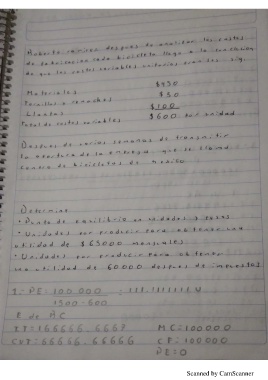 Roberto Ramirez despues de analizar los costos
de fabricacion cada bicicleta llego a la conclusion
de que los costos variables unitarios eran los sig.
Materiales $450
$50
$100
Total de costos variables $600 por unidad
Despues de varias semanas de transmitir
la apertura de la empresa que se llama
Centro de bicicletas de Mexico
Determine
• Punto de equilibrio en unidades y pesos
• Unidades por producir para obtener una
utilidad de $65000 mensuales
• Unidades por producir para obtener
una utilidad de 60000 despues de impuestos
1.- PE: 100 000 = 111.1111111 U
1500 - 600
E de AC
IT: 166666.6667 MC: 100000
CVT: 66666.66666 CF: 100000
PE: 0
Scanned by CamScanner